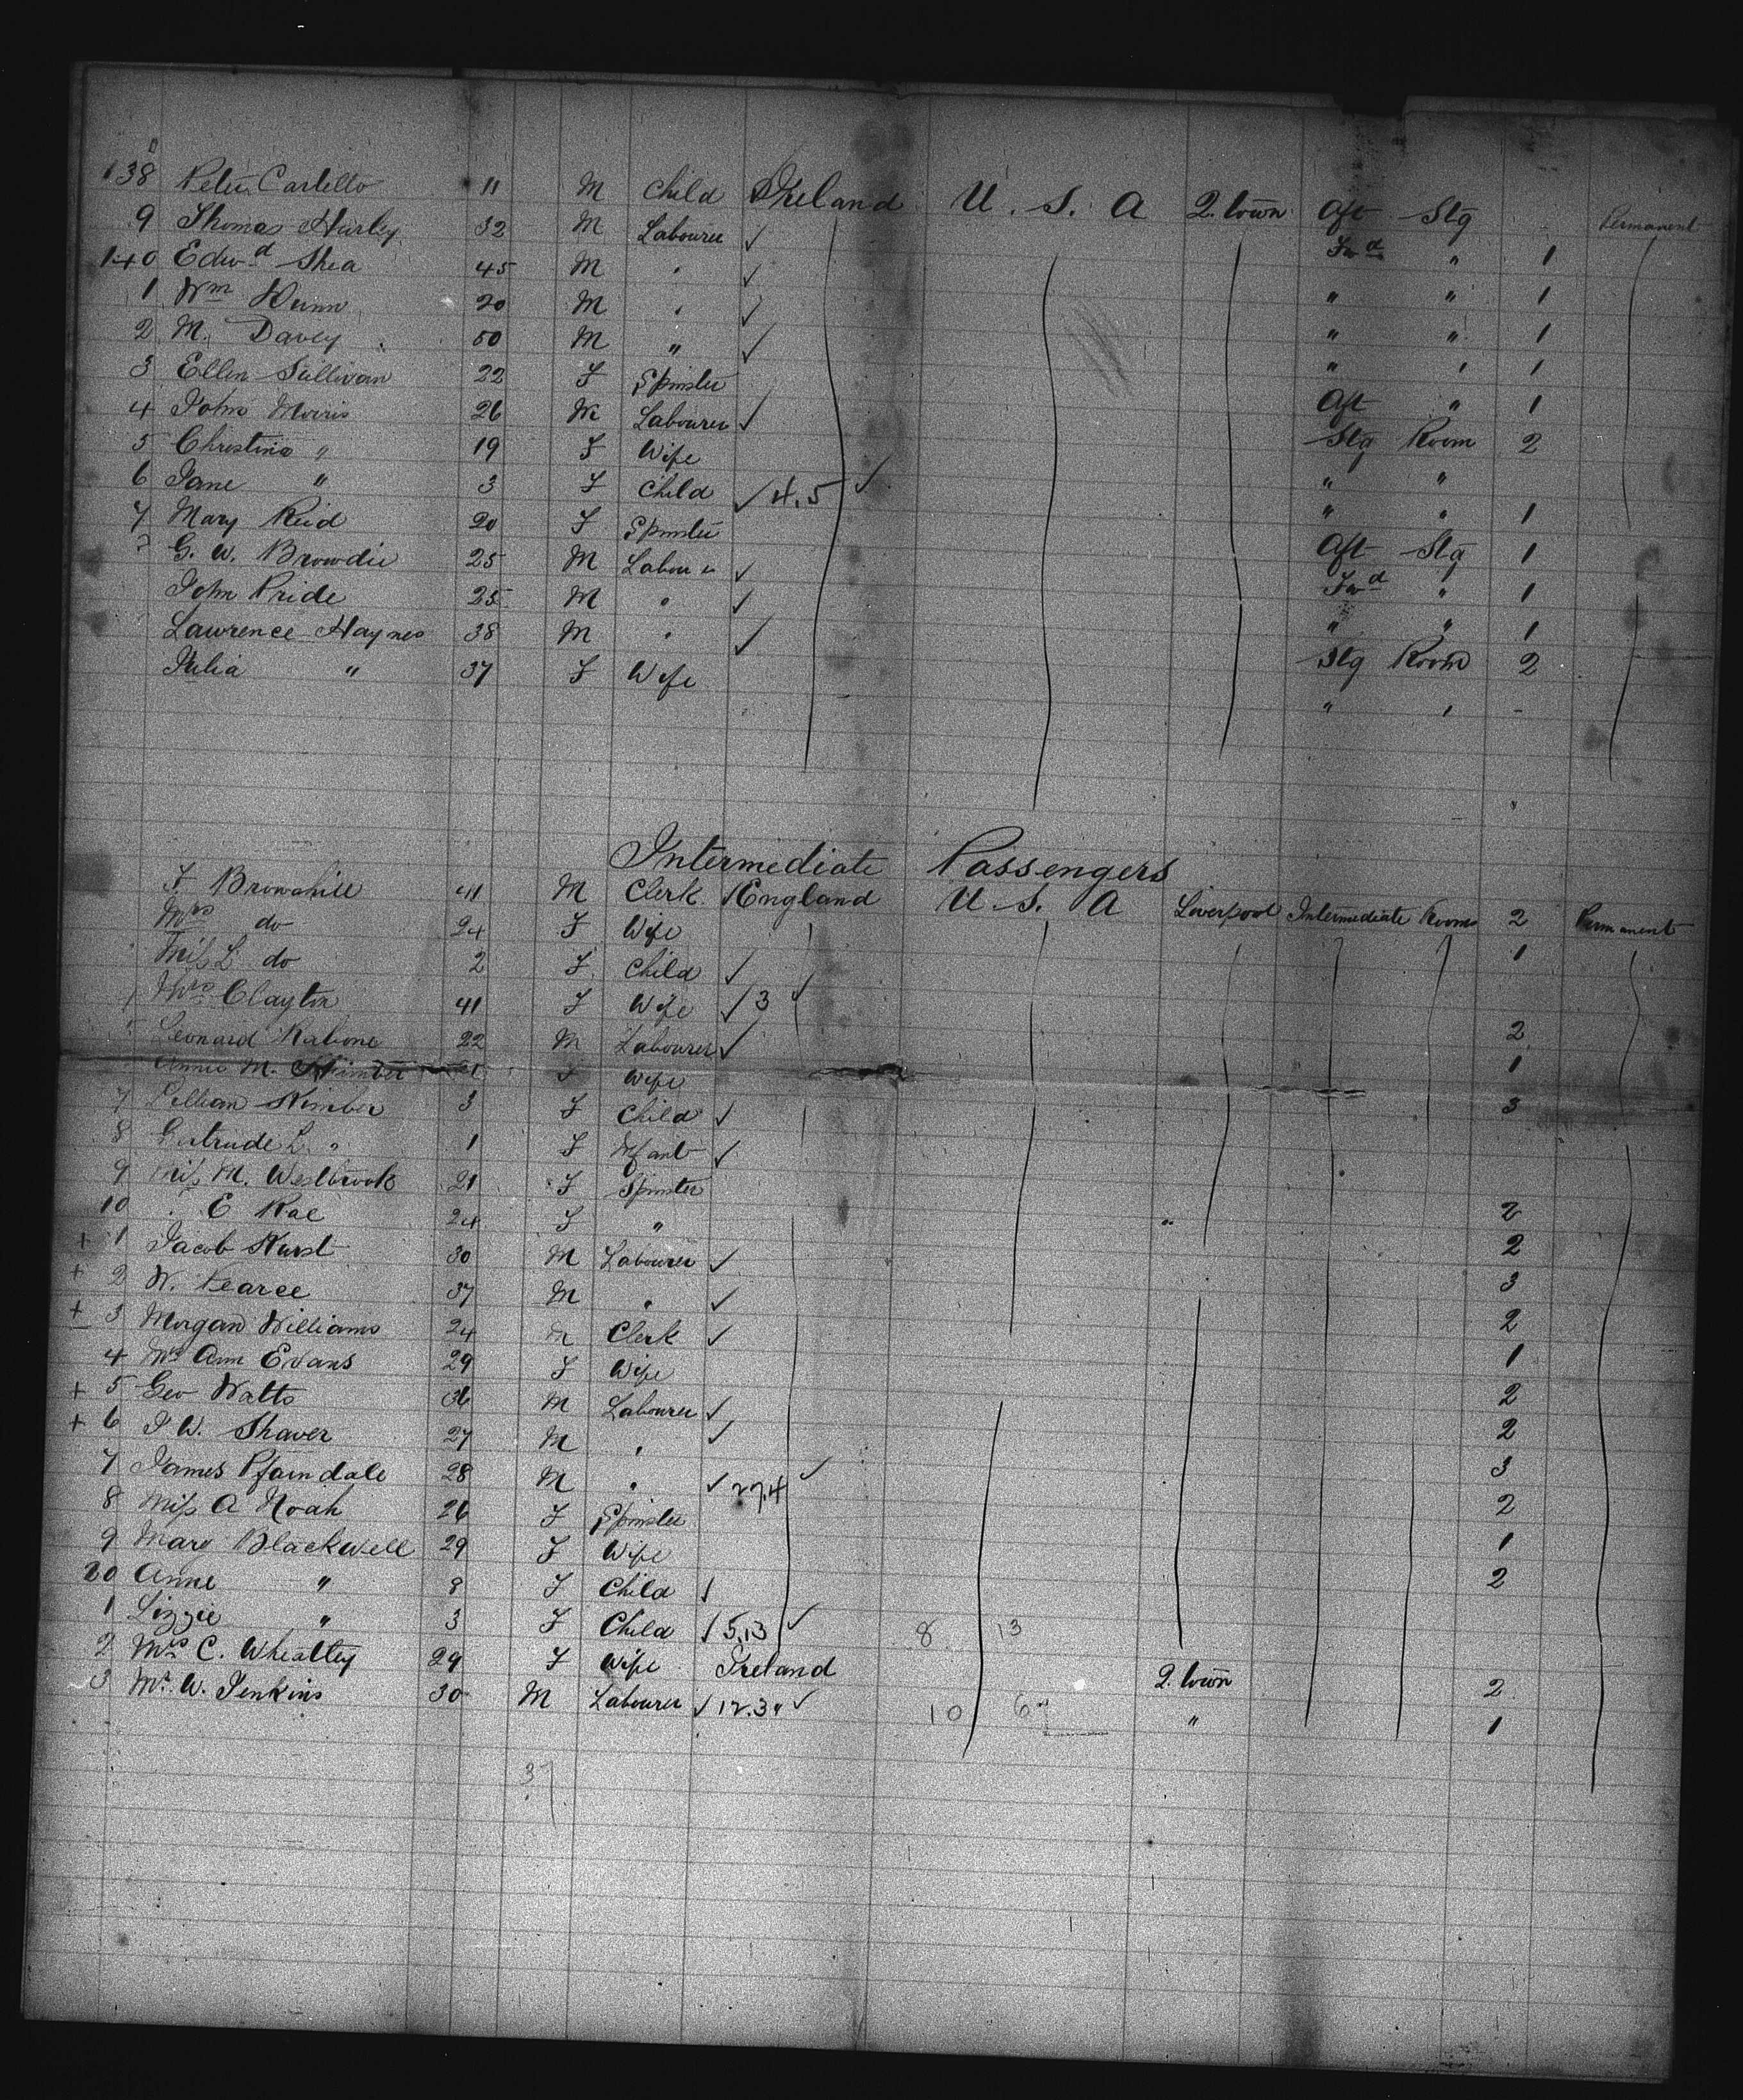 138 Peter Costello 11 M Child Ireland U. S. A Q. town Aft Stg Permanent
9 Thomas Hurley 32 M Labourer ✓ Fwd " 1
140 Edwd Shea 45 M " ✓ " " 1
1 Wm Dunn 20 M " ✓ " " 1
2 M. Davey 50 M " ✓ " " 1
3 Ellen Sullivan 22 F Spinster Aft " 1
4 John Morris 26 M Labourer ✓ Stg Room 2
5 Christina " 19 F Wife " "
6 Jane " 3 F Child ✓ 4.5 ✓ " " 1
7 Mary Reid 20 F Spinster Aft Stg 1
G. W. Browdie 25 M Labourer ✓ Fwd " 1
John Pride 25 M " ✓ " " 1
Lawrence Haynes 38 M " ✓ Stg Room 2
Julia " 37 F Wife " "
Intermediate Passengers
Brownhill 41 M Clerk England U. S. A Liverpool Intermediate Rooms 2 Permanent
Mrs do 24 F Wife 1
Miss L do 2 F Child ✓
Mrs Clayton 41 F Wife ✓ 3 ✓ 2
Leonard 22 M Labourer ✓ 1
Annie M. Kimber F Wife 3
7 Lillian Kimber 3 F Child ✓
8 Gertrude L. " 1 F Infant ✓
9 Miss M. Westbrook 21 F Spinster 2
10 " E Rae 24 F " " 2
+ 1 Jacob Hurst 30 M Labourer ✓ 3
+ 2 W. Pearce 37 M " ✓ 2
+ 3 Morgan Williams 24 M Clerk ✓ 1
4 Mrs Ann Evans 29 F Wife 2
+ 5 Geo Watts 36 M Labourer ✓ 2
+ 6 J W. Shaver 27 M " ✓ 3
7 James 28 M " ✓ 27.4 ✓ 2
8 Miss A Noah 26 F Spinster 1
9 Mary Blackwell 29 F Wife 2
20 Anne " 8 F Child
1 Lizzie " 3 F Child 5.13 ✓ 8 13
2 Mrs C. Wheatley 29 F Wife Ireland Q. town 2
3 Mr. W. Jenkins 30 M Labourer ✓ 12.3 ✓ 10 6 " 1
37